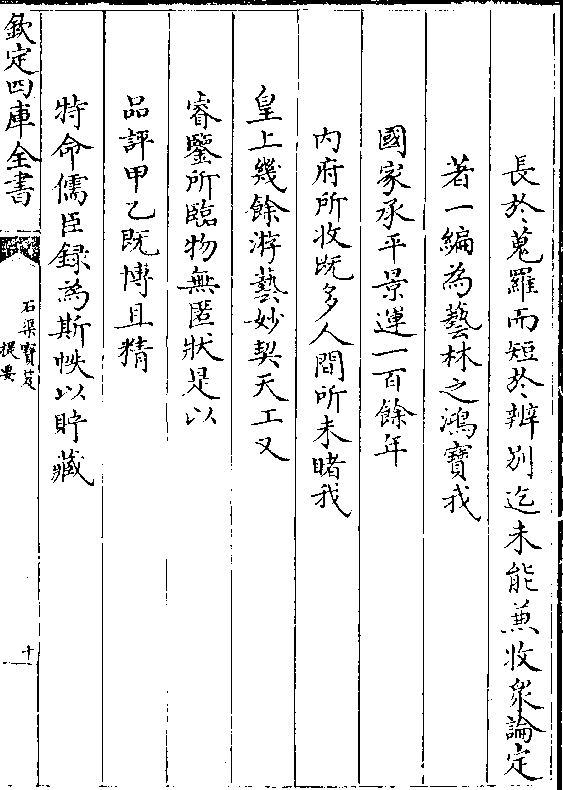 長於蒐羅而短於辨别迄未能兼收衆論定
著一編為藝林之鴻寶我
國家承平景運一百餘年
内府所收既多人間所未睹我
皇上幾餘游藝妙契天工又
睿鑒所臨物無匿狀是以
品評甲乙既博且精
特命儒臣録為斯帙以貯藏
欽定四庫全書
石渠寶笈
提要
十